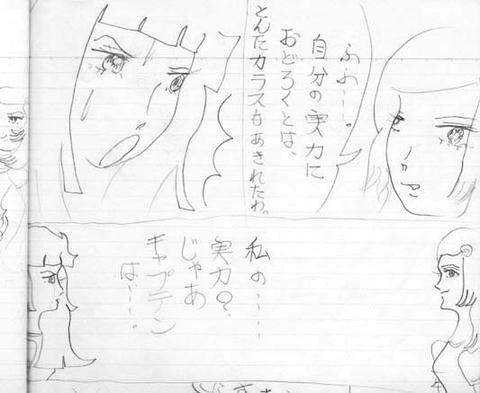 ふわー…。
自分の実力に
おどろくとは、
とんだカラスもあきれたわ。
私の……
実力?
じゃあ
キャプテン
は……。